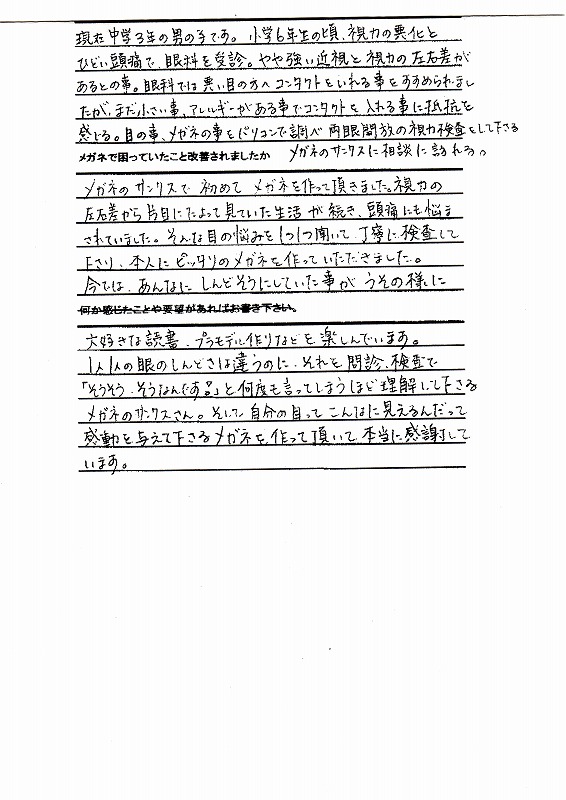 現在中学3年の男の子です。小学6年生の頃、視力の悪化と
ひどい頭痛で、眼科を受診。やや強い近視と視力の左右差が
あるとの事。眼科では悪い目の方へコンタクトをいれる事をすすめられまし
たが、まだ小さい事、アレルギーがある事でコンタクトを入れる事に抵抗を
感じる。目の事、メガネの事をパソコンで調べ両眼開放の視力検査をして下さる
メガネで困っていたこと改善されましたか メガネのサンクスに相談に訪れる。
メガネのサンクスで初めてメガネを作って頂きました。視力の
左右差から片目にたよって見ていた生活が続き、頭痛にも悩ま
されていました。そんな目の悩みを1つ1つ聞いて、丁寧に検査して
下さり、本人にピッタリのメガネを作っていただきました。
今では、あんなにしんどそうにしていた事がうその様に
何か感じたことや要望があればお書き下さい。
大好きな読書、プラモデル作りなどを楽しんでいます。
1人1人の眼のしんどさは違うのに、それを問診、検査で
「そうそう、そうなんです。」と何度も言ってしまうほど理解して下さる
メガネのサンクスさん。そして自分の目ってこんなに見えるんだって
感動を与えて下さるメガネを作って頂いて、本当に感謝して
います。